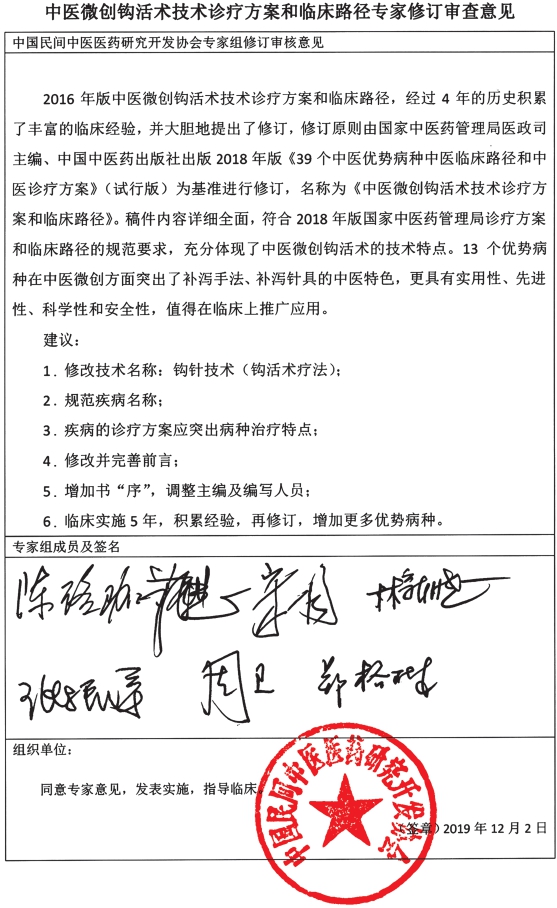 中医微创钩活术技术诊疗方案和临床路径专家修订审查意见
中国民间中医医药研究开发协会专家组修订审核意见
2016 年版中医微创钩活术技术诊疗方案和临床路径，经过 4 年的历史积累
了丰富的临床经验，并大胆地提出了修订，修订原则由国家中医药管理局医政司
主编、中国中医药出版社出版 2018 年版《39 个中医优势病种中医临床路径和中
医诊疗方案》（试行版）为基准进行修订，名称为《中医微创钩活术技术诊疗方
案和临床路径》。稿件内容详细全面，符合 2018 年版国家中医药管理局诊疗方案
和临床路径的规范要求，充分体现了中医微创钩活术的技术特点。13 个优势病
种在中医微创方面突出了补泻手法、补泻针具的中医特色，更具有实用性、先进
性、科学性和安全性，值得在临床上推广应用。
建议：
1．修改技术名称：钩针技术（钩活术疗法）；
2．规范疾病名称；
3．疾病的诊疗方案应突出病种治疗特点；
4．修改并完善前言；
5．增加书“序”，调整主编及编写人员；
6．临床实施 5 年，积累经验，再修订，增加更多优势病种。
专家组成员及签名
周卫
组织单位：
同意专家意见，发表实施，指导临床。
中国民间中医医药研究开发协会
（签章）2019 年 12 月 2 日